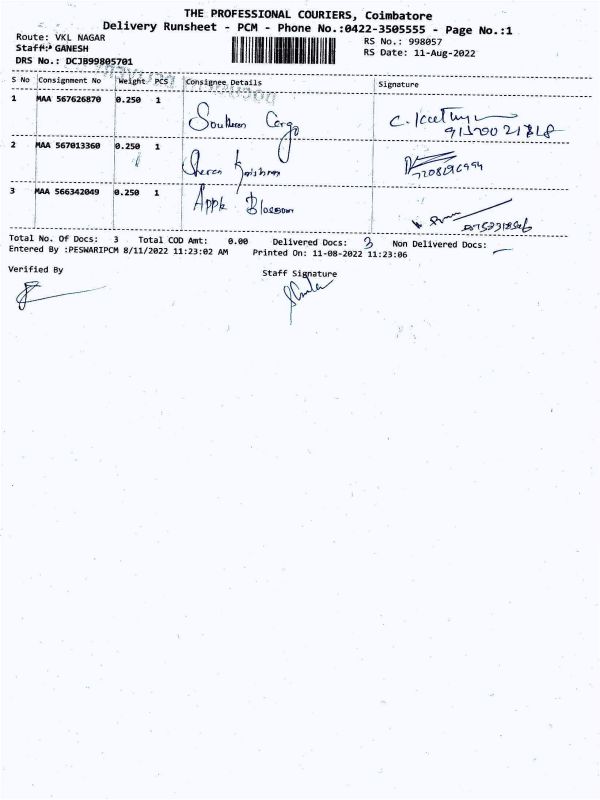 THE PROFESSIONAL COURIERS, Coimbatore
Delivery Runsheet - PCM - Phone No.:0422-3505555 - Page No.:1
Route: VKL NAGAR
RS No.: 998057
Staff: GANESH
RS Date: 11-Aug-2022
DRS No.: DCJB99805701
S No Consignment No Weight PCS Consignee Details Signature
1 MAA 567626870 0.250 1 Southern Cargo
2 MAA 567013360 0.250 1
3 MAA 566342049 0.250 1 Apple Blossom
Total No. Of Docs: 3 Total COD Amt: 0.00 Delivered Docs: 3 Non Delivered Docs:
Entered By :PESWARIPCM 8/11/2022 11:23:02 AM Printed On: 11-08-2022 11:23:06
Verified By
Staff Signature